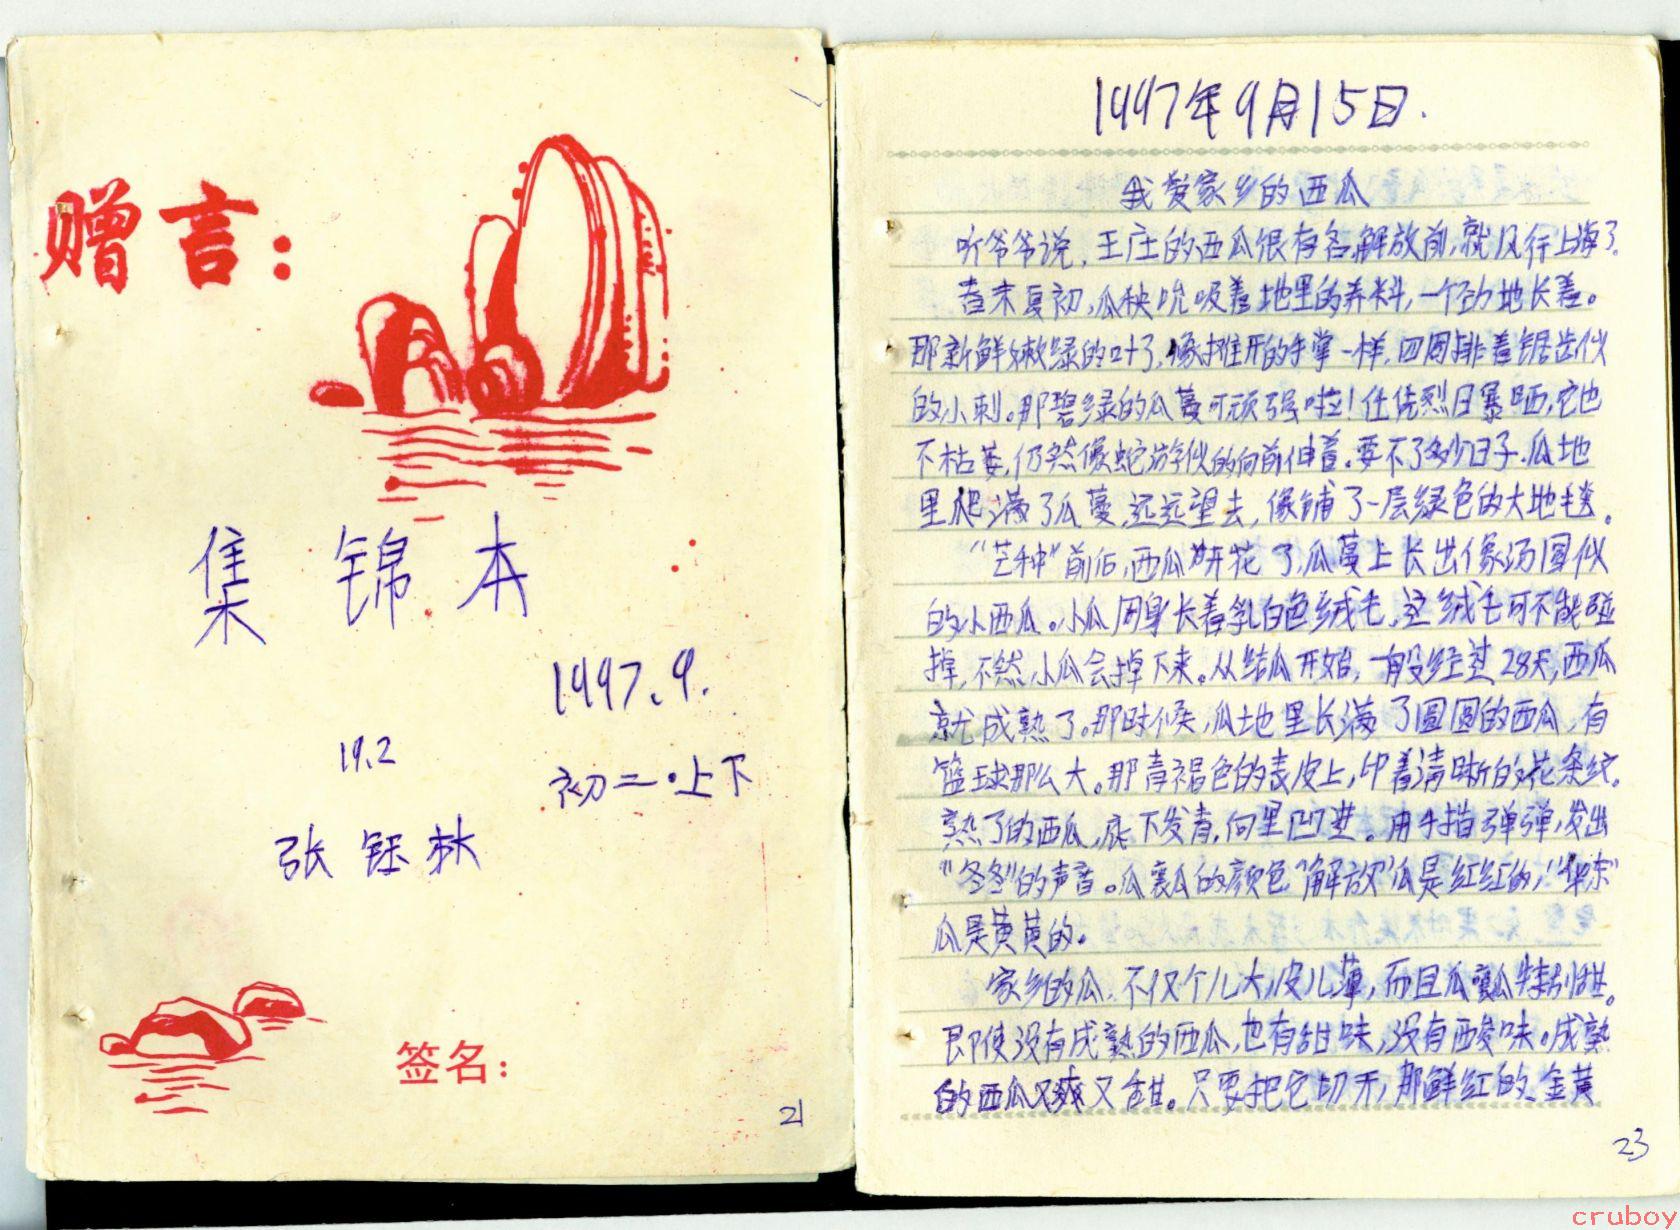 赠言:
集锦本
1997.9.
19.2
初二·上下
张钰林
签名:
21
1997年9月15日.
我爱家乡的西瓜
听爷爷说,王庄的西瓜很有名,解放前,就风行上海了.
春末夏初,瓜秧吮吸着地里的养料,一个劲地长着。
那新鲜嫩绿的叶子,像摊开的手掌一样,四周排着锯齿似
的小刺。那碧绿的瓜蔓可顽强啦!任凭烈日暴晒,它也
不枯萎,仍然像蛇游似的向前伸着。要不了多少日子,瓜地
里爬满了瓜蔓,远远望去,像铺了一层绿色的大地毯。
“芒种”前后,西瓜开花了,瓜蔓上长出像汤圆似
的小西瓜。小瓜周身长着乳白色绒毛,这绒毛可不能碰
掉,不然,小瓜会掉下来。从结瓜开始,一般经过28天,西瓜
就成熟了。那时候,瓜地里长满了圆圆的西瓜,有
篮球那么大。那青褐色的表皮上,印着清晰的花条纹。
熟了的西瓜,底下发青,向里凹进。用手指弹弹,发出
“冬冬”的声音。瓜瓤的颜色“解放”瓜是红红的,“华东”
瓜是黄黄的。
家乡的瓜,不仅个儿大,皮儿薄,而且瓜瓤特别甜。
即使没有成熟的西瓜,也有甜味,没有酸味。成熟
的西瓜又爽又甜。只要把它切开,那鲜红的、金黄
23
cruboy